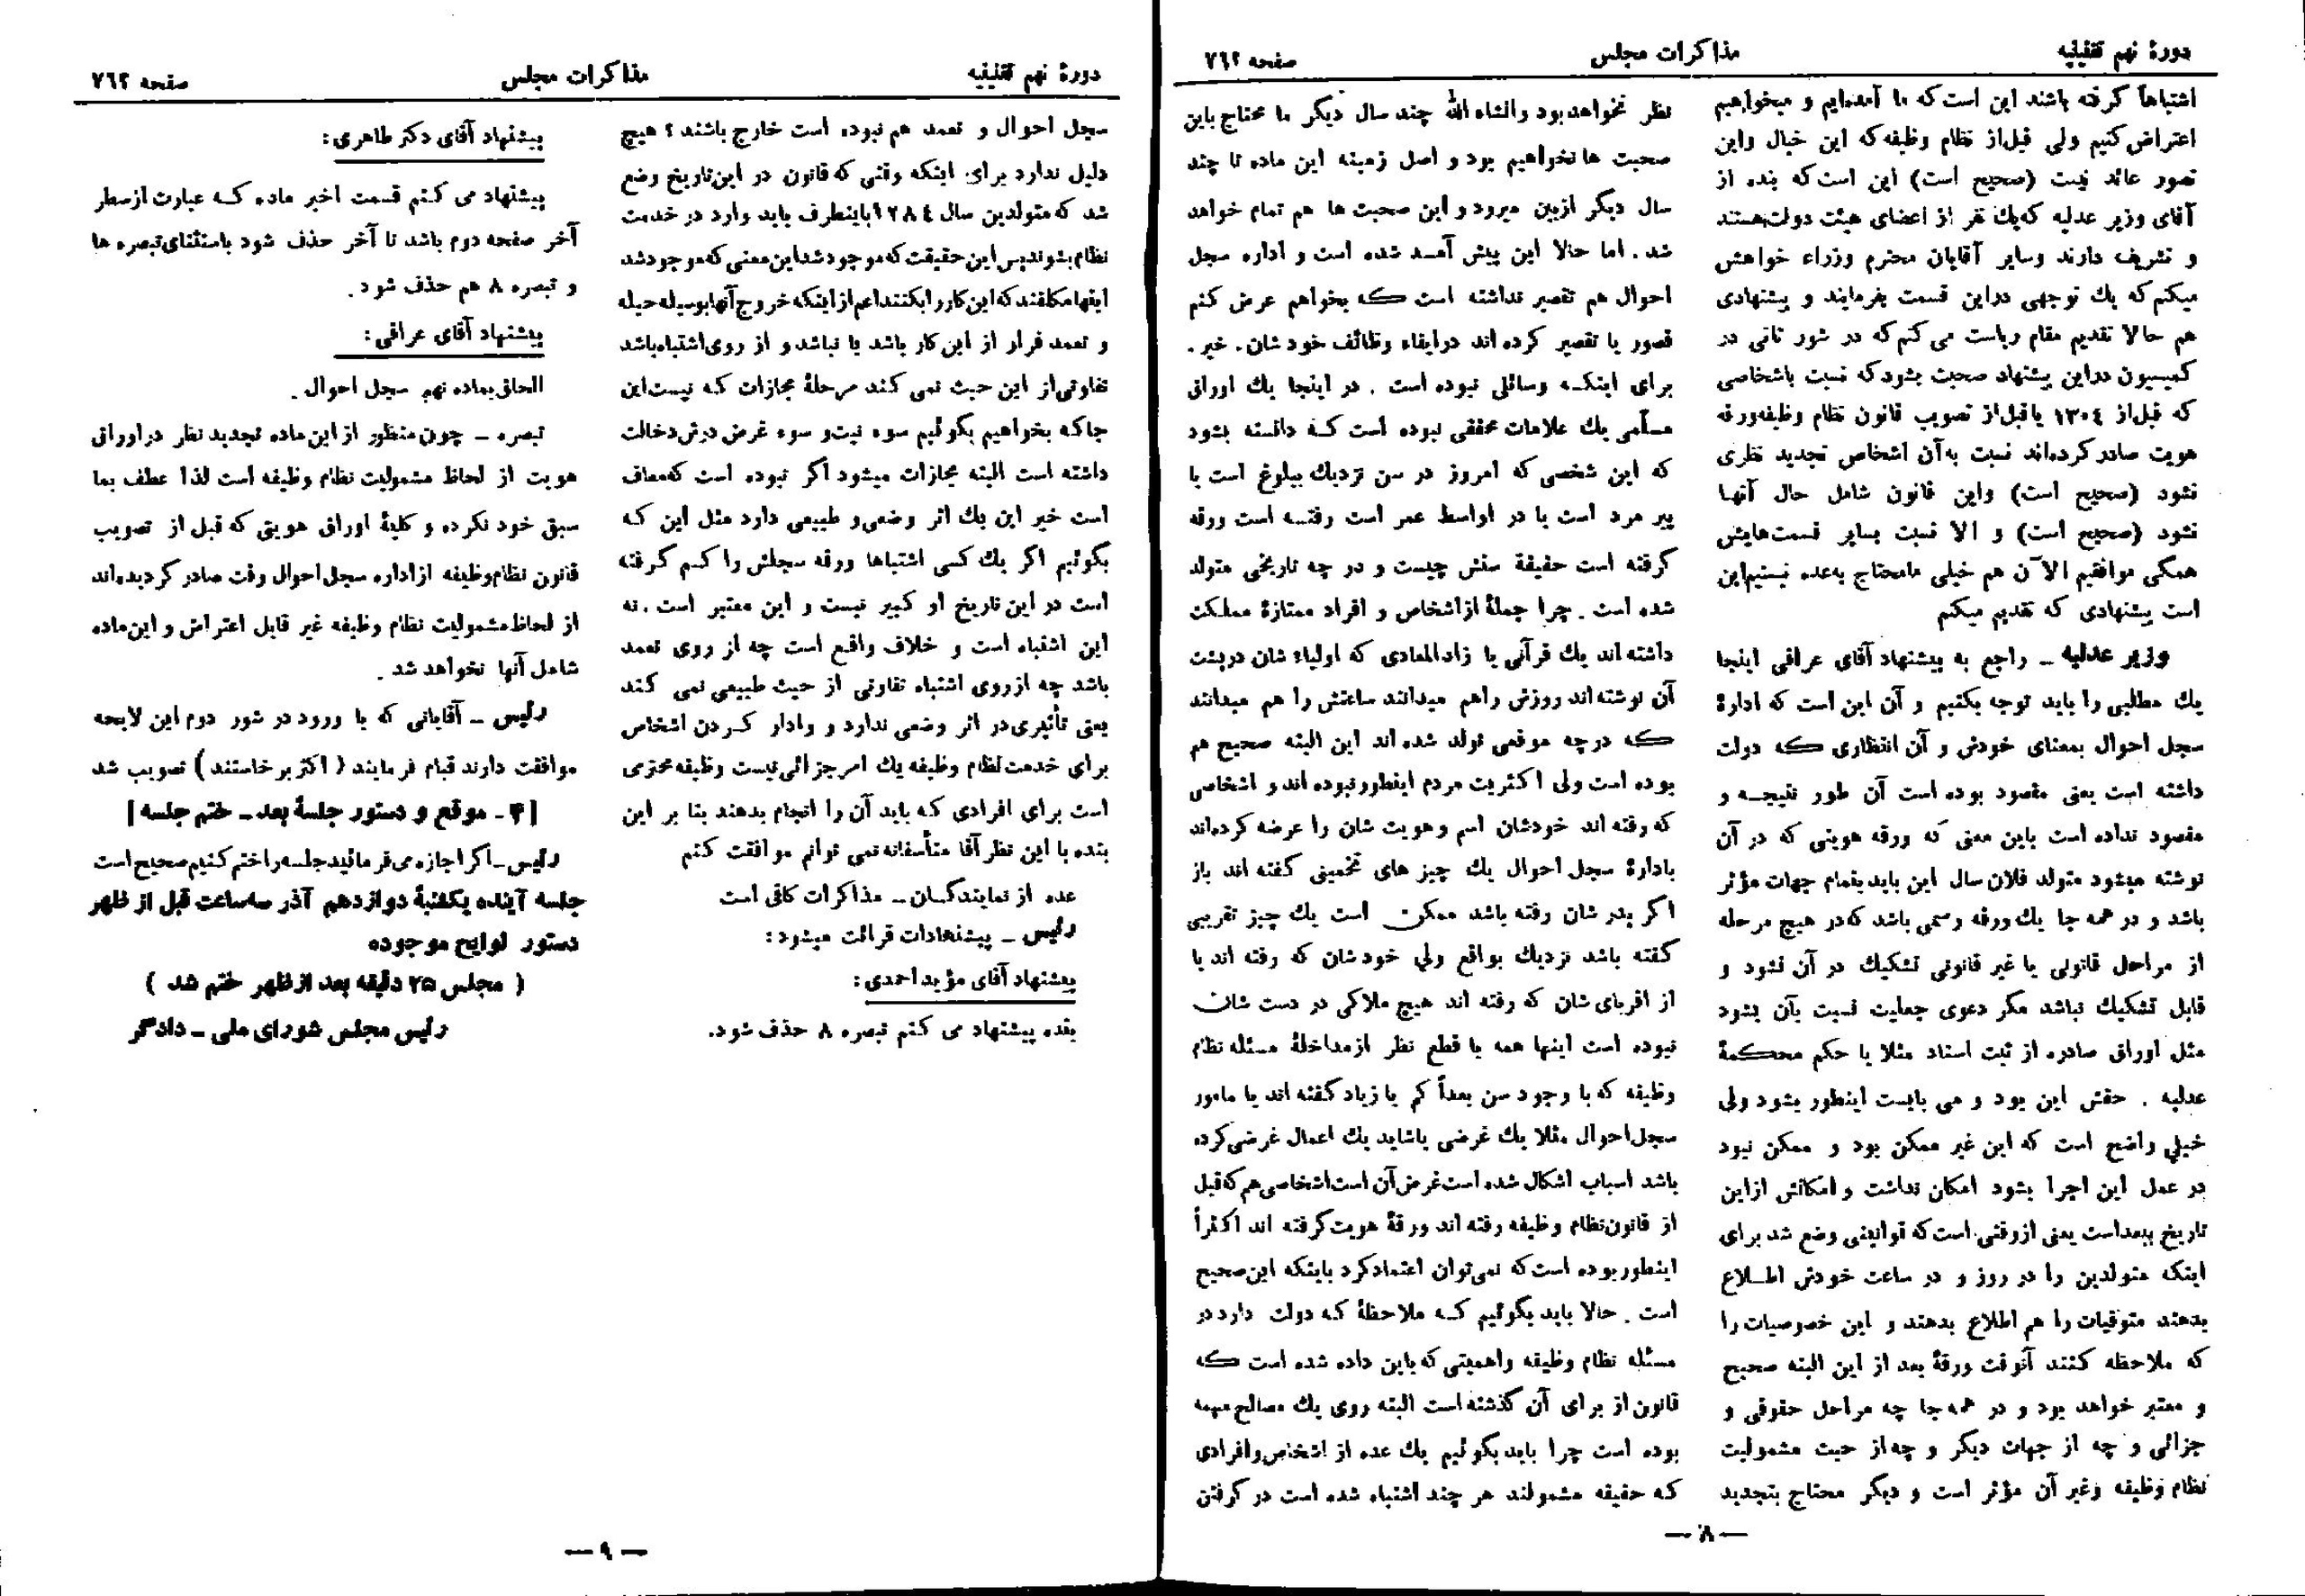 دورهٔ نهم تقنینیه
مذاکرات مجلس
صفحه ۷۶۲
اشتباهاً گرفته باشند این است که ما آمده‌ایم و میخواهیم
اعتراض کنیم ولی قبل از نظام وظیفه که این خیال واین
تصور عائد نیست (صحیح است) این است که بنده از
آقای وزیر عدلیه که یك نفر از اعضای هیئت دولت هستند
و تشریف دارند وسایر آقایان محترم وزراء خواهش
میکنم که یك توجهی در این قسمت بفرمایند و پیشنهادی
هم حالا تقدیم مقام ریاست می کنم که در شور ثانی در
کمیسیون در این پیشنهاد صحبت بشود که نسبت باشخاصی
که قبل از ۱۳۰٤ یا قبل از تصویب قانون نظام وظیفه ورقه
هویت صادر کرده‌اند نسبت به آن اشخاص تجدید نظری
نشود (صحیح است) واین قانون شامل حال آنها
نشود (صحیح است) و الا نسبت بسایر قسمت‌هایش
همگی موافقیم الآن هم خیلی ما محتاج به عده نیستیم این
است پیشنهادی که تقدیم میکنم
وزیر عدلیه ـ راجع به پیشنهاد آقای عراقی اینجا
یك مطلبی را باید توجه بکنیم و آن این است که ادارهٔ
سجل احوال بمعنای خودش و آن انتظاری که دولت
داشته است یعنی مقصود بوده است آن طور نتیجه و
مقصود نداده است باین معنی که ورقه هویتی که در آن
نوشته میشود متولد فلان سال این باید بتمام جهات مؤثر
باشد و در همه جا یك ورقه رسمی باشد که در هیچ مرحله
از مراحل قانونی یا غیر قانونی تشکیك در آن نشود و
قابل تشکیك نباشد مگر دعوی جعلیت نسبت بآن بشود
مثل اوراق صادره از ثبت اسناد مثلا یا حکم محکمهٔ
عدلیه . حقش این بود و می بایست اینطور بشود ولی
خیلی واضح است که این غیر ممکن بود و ممکن نبود
در عمل این اجرا بشود امکان نداشت و امکانش از این
تاریخ ببعد است یعنی از وقتی است که قوانینی وضع شد برای
اینکه متولدین را در روز و در ساعت خودش اطلاع
بدهند متوفیات را هم اطلاع بدهند و این خصوصیات را
که ملاحظه کنند آنوقت ورقهٔ بعد از این البته صحیح
و معتبر خواهد بود و در همه جا چه مراحل حقوقی و
جزائی و چه از جهات دیگر و چه از حیث مشمولیت
نظام وظیفه وغیر آن مؤثر است و دیگر محتاج بتجدید
نظر نخواهد بود و انشاء الله چند سال دیگر ما محتاج باین
صحبت ها نخواهیم بود و اصل زمینه این ماده تا چند
سال دیگر از بین میرود و این صحبت ها هم تمام خواهد
شد . اما حالا این پیش آمد شده است و اداره سجل
احوال هم تقصیر نداشته است که بخواهم عرض کنم
قصور یا تقصیر کرده اند در ایفاء وظائف خودشان . خیر .
برای اینکه وسائلی نبوده است . در اینجا یك اوراق
مسلمی یك علامات محققی نبوده است که دانسته بشود
که این شخصی که امروز در سن نزدیك ببلوغ است یا
پیر مرد است یا در اواسط عمر است رفته است ورقه
گرفته است حقیقة سنش چیست و در چه تاریخی متولد
شده است . چرا جملهٔ از اشخاص و افراد ممتازهٔ مملکت
داشته اند یك قرآنی یا زاد المعادی که اولیاء شان در پشت
آن نوشته اند روزش را هم میدانند ساعتش را هم میدانند
که در چه موقعی تولد شده اند این البته صحیح هم
بوده است ولی اکثریت مردم اینطور نبوده اند و اشخاصی
که رفته اند خودشان اسم وهویت شان را عرضه کرده‌اند
بادارهٔ سجل احوال یك چیز های تخمینی گفته اند باز
اگر پدر شان رفته باشد ممکن است یك چیز تقریبی
گفته باشد نزدیك بواقع ولی خودشان که رفته اند یا
از اقربای شان که رفته اند هیچ ملاکی در دست شان
نبوده است اینها همه با قطع نظر از مداخلهٔ مسئله نظام
وظیفه که با وجود سن بعداً کم یا زیاد گفته اند یا مامور
سجل احوال مثلا یك غرضی یا شاید یك اعمال غرضی کرده
باشد اسباب اشکال شده است غرض آن است اشخاصی هم که قبل
از قانون نظام وظیفه رفته اند ورقهٔ هویت گرفته اند اکثراً
اینطور بوده است که نمی‌توان اعتماد کرد باینکه این صحیح
است . حالا باید بگوئیم که ملاحظهٔ که دولت دارد در
مسئله نظام وظیفه واهمیتی که باین داده شده است که
قانون از برای آن گذشته است البته روی یك مصالح مهمه
بوده است چرا باید بگوئیم یك عده از اشخاص و افرادی
که حقیقه مشمولند هر چند اشتباه شده است در گرفتن
— ۸ —
دورهٔ نهم تقنینیه
مذاکرات مجلس
صفحه ۷۶۲
سجل احوال و تعمد هم نبوده است خارج باشند ؟ هیچ
دلیل ندارد برای اینکه وقتی که قانون در این تاریخ وضع
شد که متولدین سال ۱۲۸٤ باینطرف باید وارد در خدمت
نظام بشوند پس این حقیقت که موجود شد این معنی که موجود شد
اینها مکلفند که این کار را بکنند اعم از اینکه خروج آنها بوسیله حیله
و تعمد فرار از این کار باشد یا نباشد و از روی اشتباه باشد
تفاوتی از این حیث نمی کند مرحلهٔ مجازات که نیست این
جا که بخواهیم بگوئیم سوء نیت و سوء غرض درش دخالت
داشته است البته مجازات میشود اگر نبوده است که معاف
است خیر این یك اثر وضعی و طبیعی دارد مثل این که
بگوئیم اگر یك کسی اشتباها ورقه سجلش را کم گرفته
است در این تاریخ او کبیر نیست و این معتبر است . نه
این اشتباه است و خلاف واقع است چه از روی تعمد
باشد چه از روی اشتباه تفاوتی از حیث طبیعی نمی کند
یعنی تأثیری در اثر وضعی ندارد و وادار کردن اشخاص
برای خدمت نظام وظیفه یك امر جزائی نیست وظیفه محترمی
است برای افرادی که باید آن را انجام بدهند بنا بر این
بنده با این نظر آقا متأسفانه نمی توانم موافقت کنم
عده از نمایندگان ـ مذاکرات کافی است
رئیس ـ پیشنهادات قرائت میشود :
پیشنهاد آقای مؤید احمدی :
بنده پیشنهاد می کنم تبصره ۸ حذف شود.
پیشنهاد آقای دکتر طاهری :
پیشنهاد می کنم قسمت اخیر ماده که عبارت از سطر
آخر صفحه دوم باشد تا آخر حذف شود باستثنای تبصره ها
و تبصره ۸ هم حذف شود .
پیشنهاد آقای عراقی :
الحاق بماده نهم سجل احوال .
تبصره ـ چون منظور از این ماده تجدید نظر در اوراق
هویت از لحاظ مشمولیت نظام وظیفه است لذا عطف بما
سبق خود نکرده و کلیهٔ اوراق هویتی که قبل از تصویب
قانون نظام وظیفه از اداره سجل احوال وقت صادر گردیده‌اند
از لحاظ مشمولیت نظام وظیفه غیر قابل اعتراض و این ماده
شامل آنها نخواهد شد .
رئیس ـ آقایانی که با ورود در شور دوم این لایحه
موافقت دارند قیام فرمایند ( اکثر برخاستند ) تصویب شد
[ ۴ ـ موقع و دستور جلسهٔ بعد ـ ختم جلسه ]
رئیس ـ اگر اجازه می‌فرمائید جلسه را ختم کنیم صحیح است
جلسه آینده یکشنبهٔ دوازدهم آذر سه ساعت قبل از ظهر
دستور لوایح موجوده
( مجلس ۲۵ دقیقه بعد از ظهر ختم شد )
رئیس مجلس شورای ملی ـ دادگر
— ۹ —